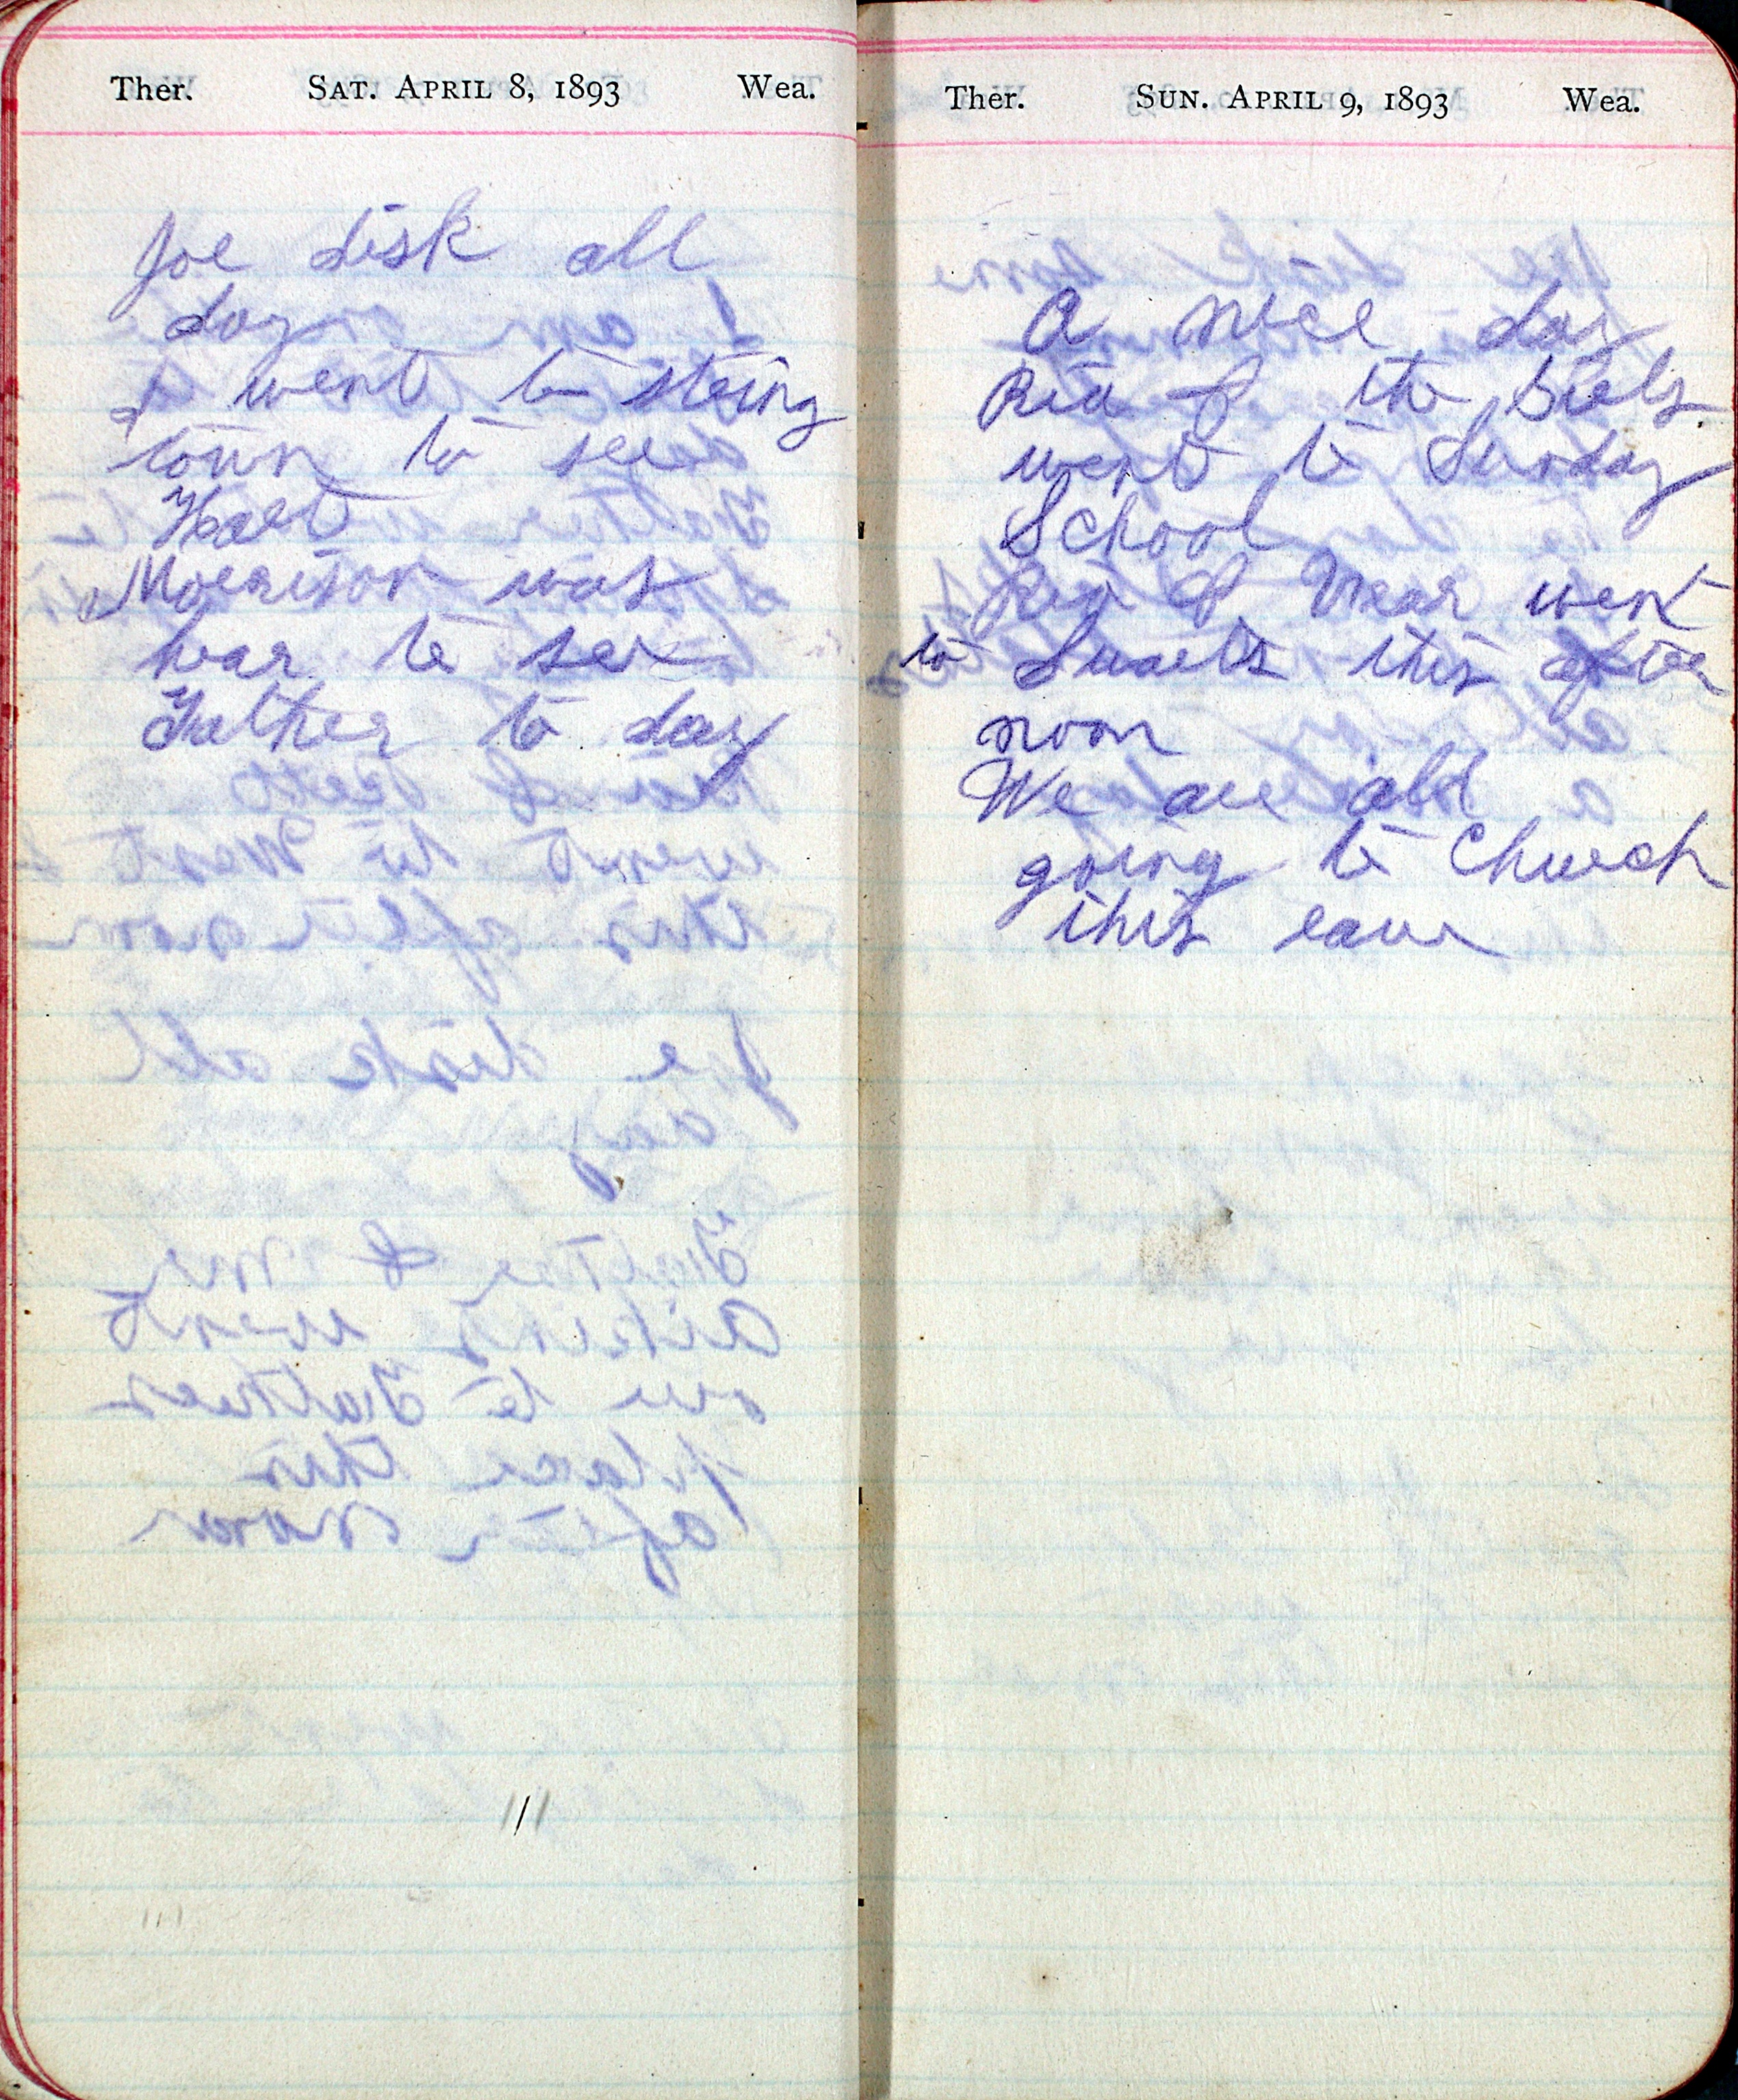 Ther. SAT. APRIL 8, 1893 Wea.
Joe disk all
day
I went to
town to see
Morrison was
hear to see
Father to day
Ther. SUN. APRIL 9, 1893 Wea.
A nice day
Ria & the
went to Sunday
School
Ria & went
to this after
noon
We are all
going to Church
this eave